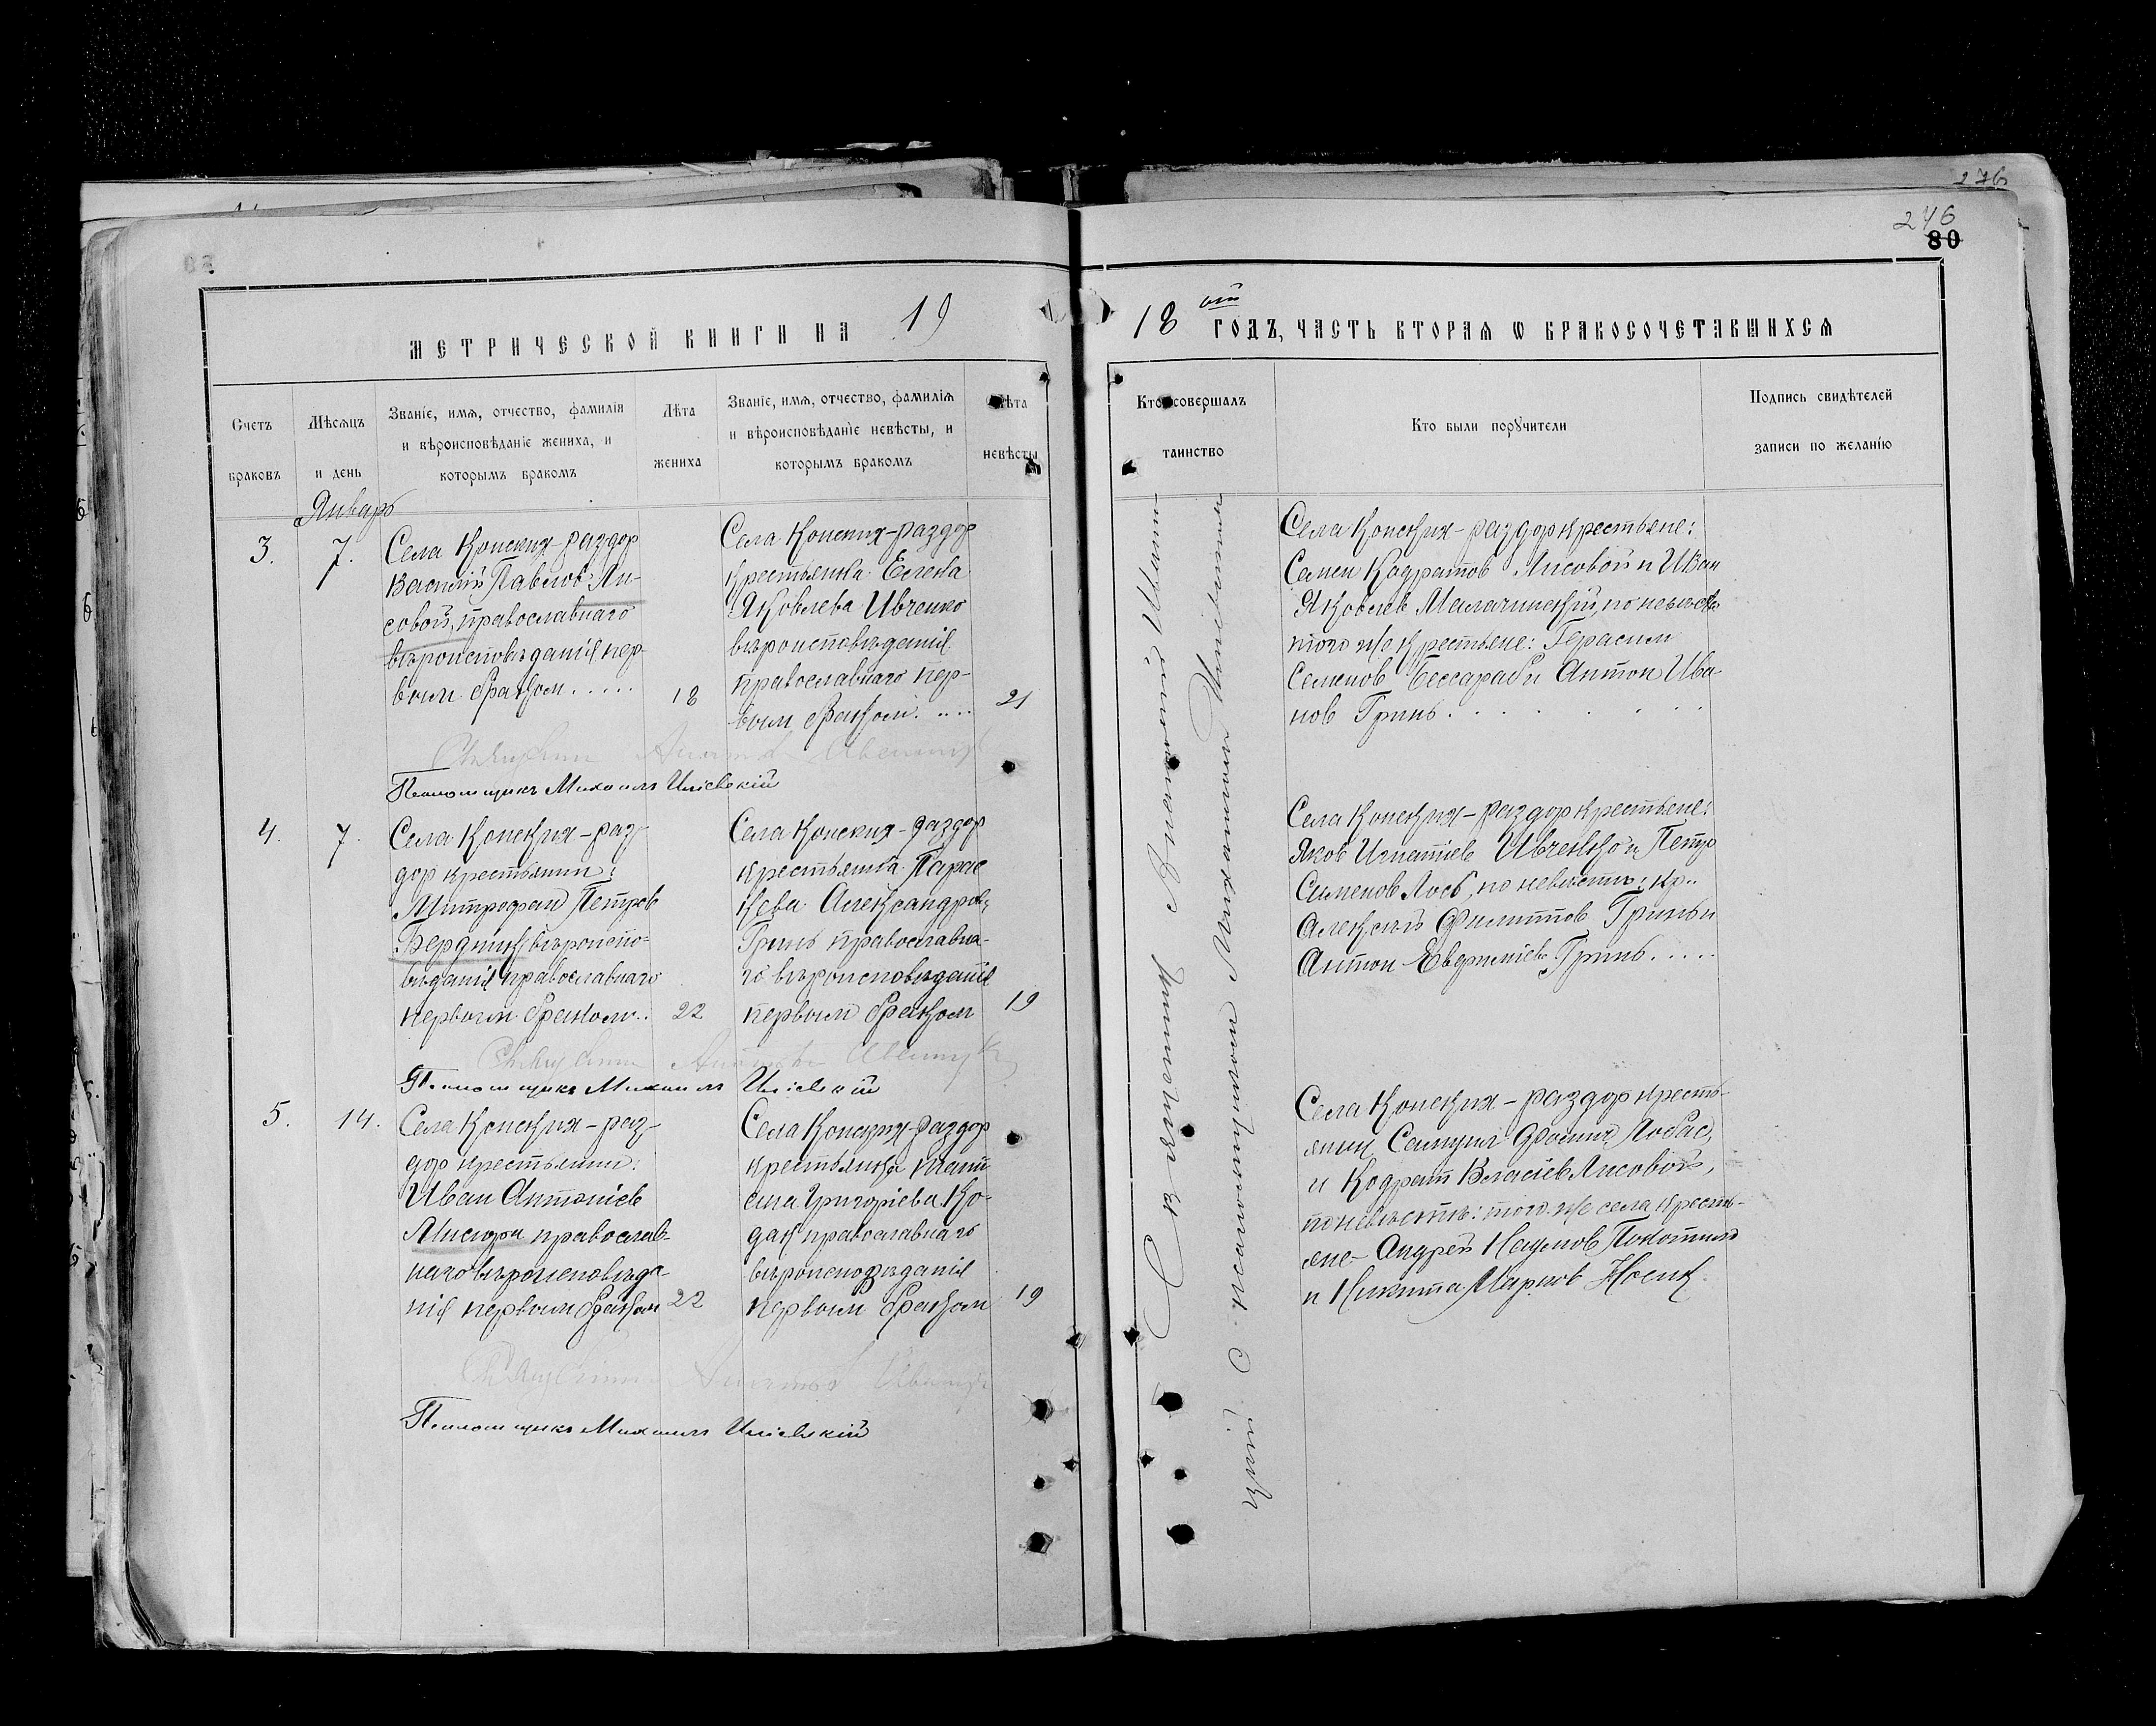 276
246
80
МЕТРИЧЕСКОЙ КНИГИ НА 19
18 ый ГОДЪ, ЧАСТЬ ВТОРАѦ Ѡ БРАКОСОЧЕТАВШИХСѦ
Счетъ браковъ
Мѣсѧцъ и день
Званіе, имѧ, отчество, фамилія
и вѣроисповѣданіе жениха, и
которымъ бракомъ
Лѣта жениха
Званіе, имѧ, отчество, фамиліѧ
и вѣроисповѣданіе невѣсты, и
которымъ бракомъ
Лѣта невѣсты
Кто совершалъ
таинство
Кто были порꙋчители
Подпись свидѣтелей
записи по желанію
Январь
3.
7.
Села Конских-раздор
Василій Павлов Ли-
совой, православнаго
вѣроисповѣданія пер-
вым браком.....
18
Села Конских-раздор
крестьянка Елена
Яковлева Ивченко
вѣроисповѣданія
православнаго пер-
вым браком. ....
21
Села Конских-раздор крестьяне:
Семен Кодратов Лисовой и Иван
Яковлев
того же крестьяне: Герасим
Семенов Бессараб и Антон Ива-
нов Гринь.
Помощникъ Михаилъ Иліевскій
4.
7.
Села Конских-раз-
дор крестьянин:
Митрофан Петров
Бердник вѣроиспо-
вѣданія православнаго
первым браком..
22
Села Конских-раздор
крестьянка Парас
кева Александров.
Гринь православна-
го вѣроисповѣданія
первым браком
19
Села Конских-раздор крестьяне:
Яков Игнатіев Ивченко и Петр
Сименов Лось, по невѣсте: кр..
Алексѣй Филиппов Гринь и
Антон Гринь.....
Помощникъ Михаилъ Иліевскій
5.
14.
Села Конских-раз-
дор крестьянин:
Иван Антоніев
православ-
наго вѣроисповѣда-
нія первым браком
22
Села Конских-раздор
крестьянка
Григоріева Ко-
дак православнаго
вѣроисповѣданія
первым браком
19
Села Конских-раздор кресть-
янин Самуил Фомич Лобас,
и Кодрат Власіев Лисовой,
по невѣсте: того же села кресть-
яне - Андрей Наумов
и Никита Марков Носик
Помощникъ Михаилъ Иліевскій
Священник
псаломщиком Михаилом